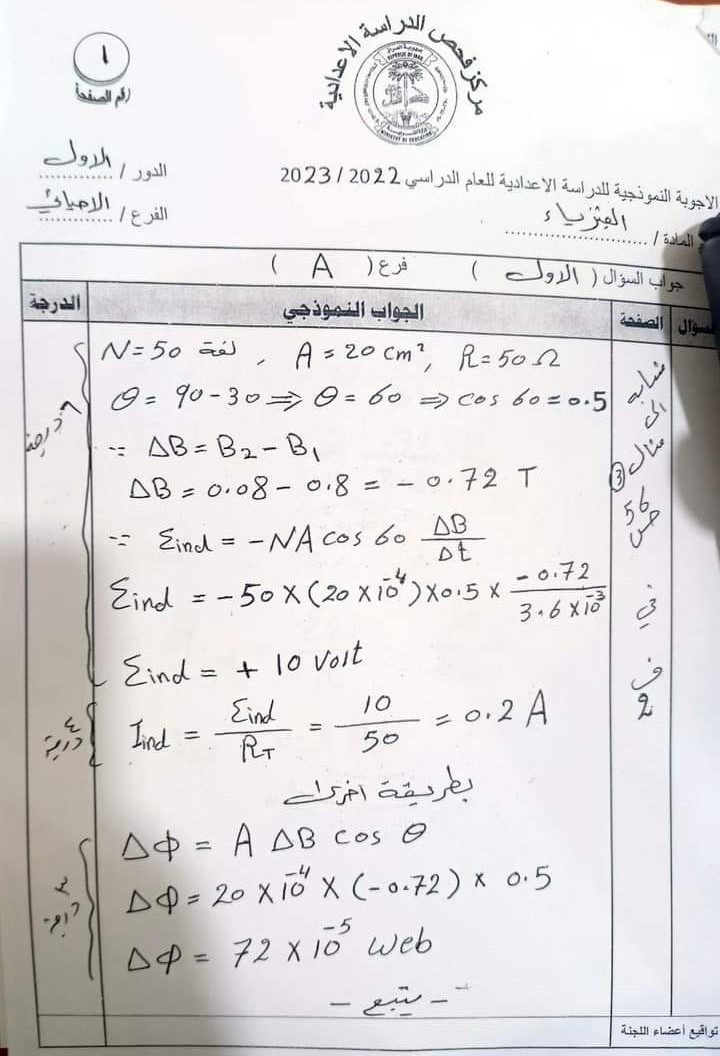 ١
رقم الصفحة
مركز فحص الدراسة الاعدادية
REPUBLIC OF IRAQ
MINISTRY OF EDUCATION
الدور / الاول
الفرع / الاحيائي
الاجوبة النموذجية للدراسة الاعدادية للعام الدراسي 2022 / 2023
المادة / الفيزياء
جواب السؤال ( الاول ) فرع ( A )
السؤال الصفحة الجواب النموذجي الدرجة
مشابه الى مثال 3 ص 56 في ف 2
N = 50 لفة , A = 20 cm², R = 50 Ω
θ = 90 - 30 ⇒ θ = 60 ⇒ cos 60 = 0.5
∵ ΔB = B₂ - B₁
ΔB = 0.08 - 0.8 = - 0.72 T
∵ Ɛind = -NA cos 60 ΔB/Δt
Ɛind = - 50 X (20 X 10⁻⁴) X 0.5 X - 0.72 / 3.6 X 10⁻³
Ɛind = + 10 Volt
٤ درجة
Iind = Ɛind / RT = 10 / 50 = 0.2 A
بطريقة اخرى
Δφ = A ΔB cos θ
Δφ = 20 X 10⁻⁴ X (-0.72) X 0.5
Δφ = 72 X 10⁻⁵ Web
- يتبع -
تواقيع أعضاء اللجنة